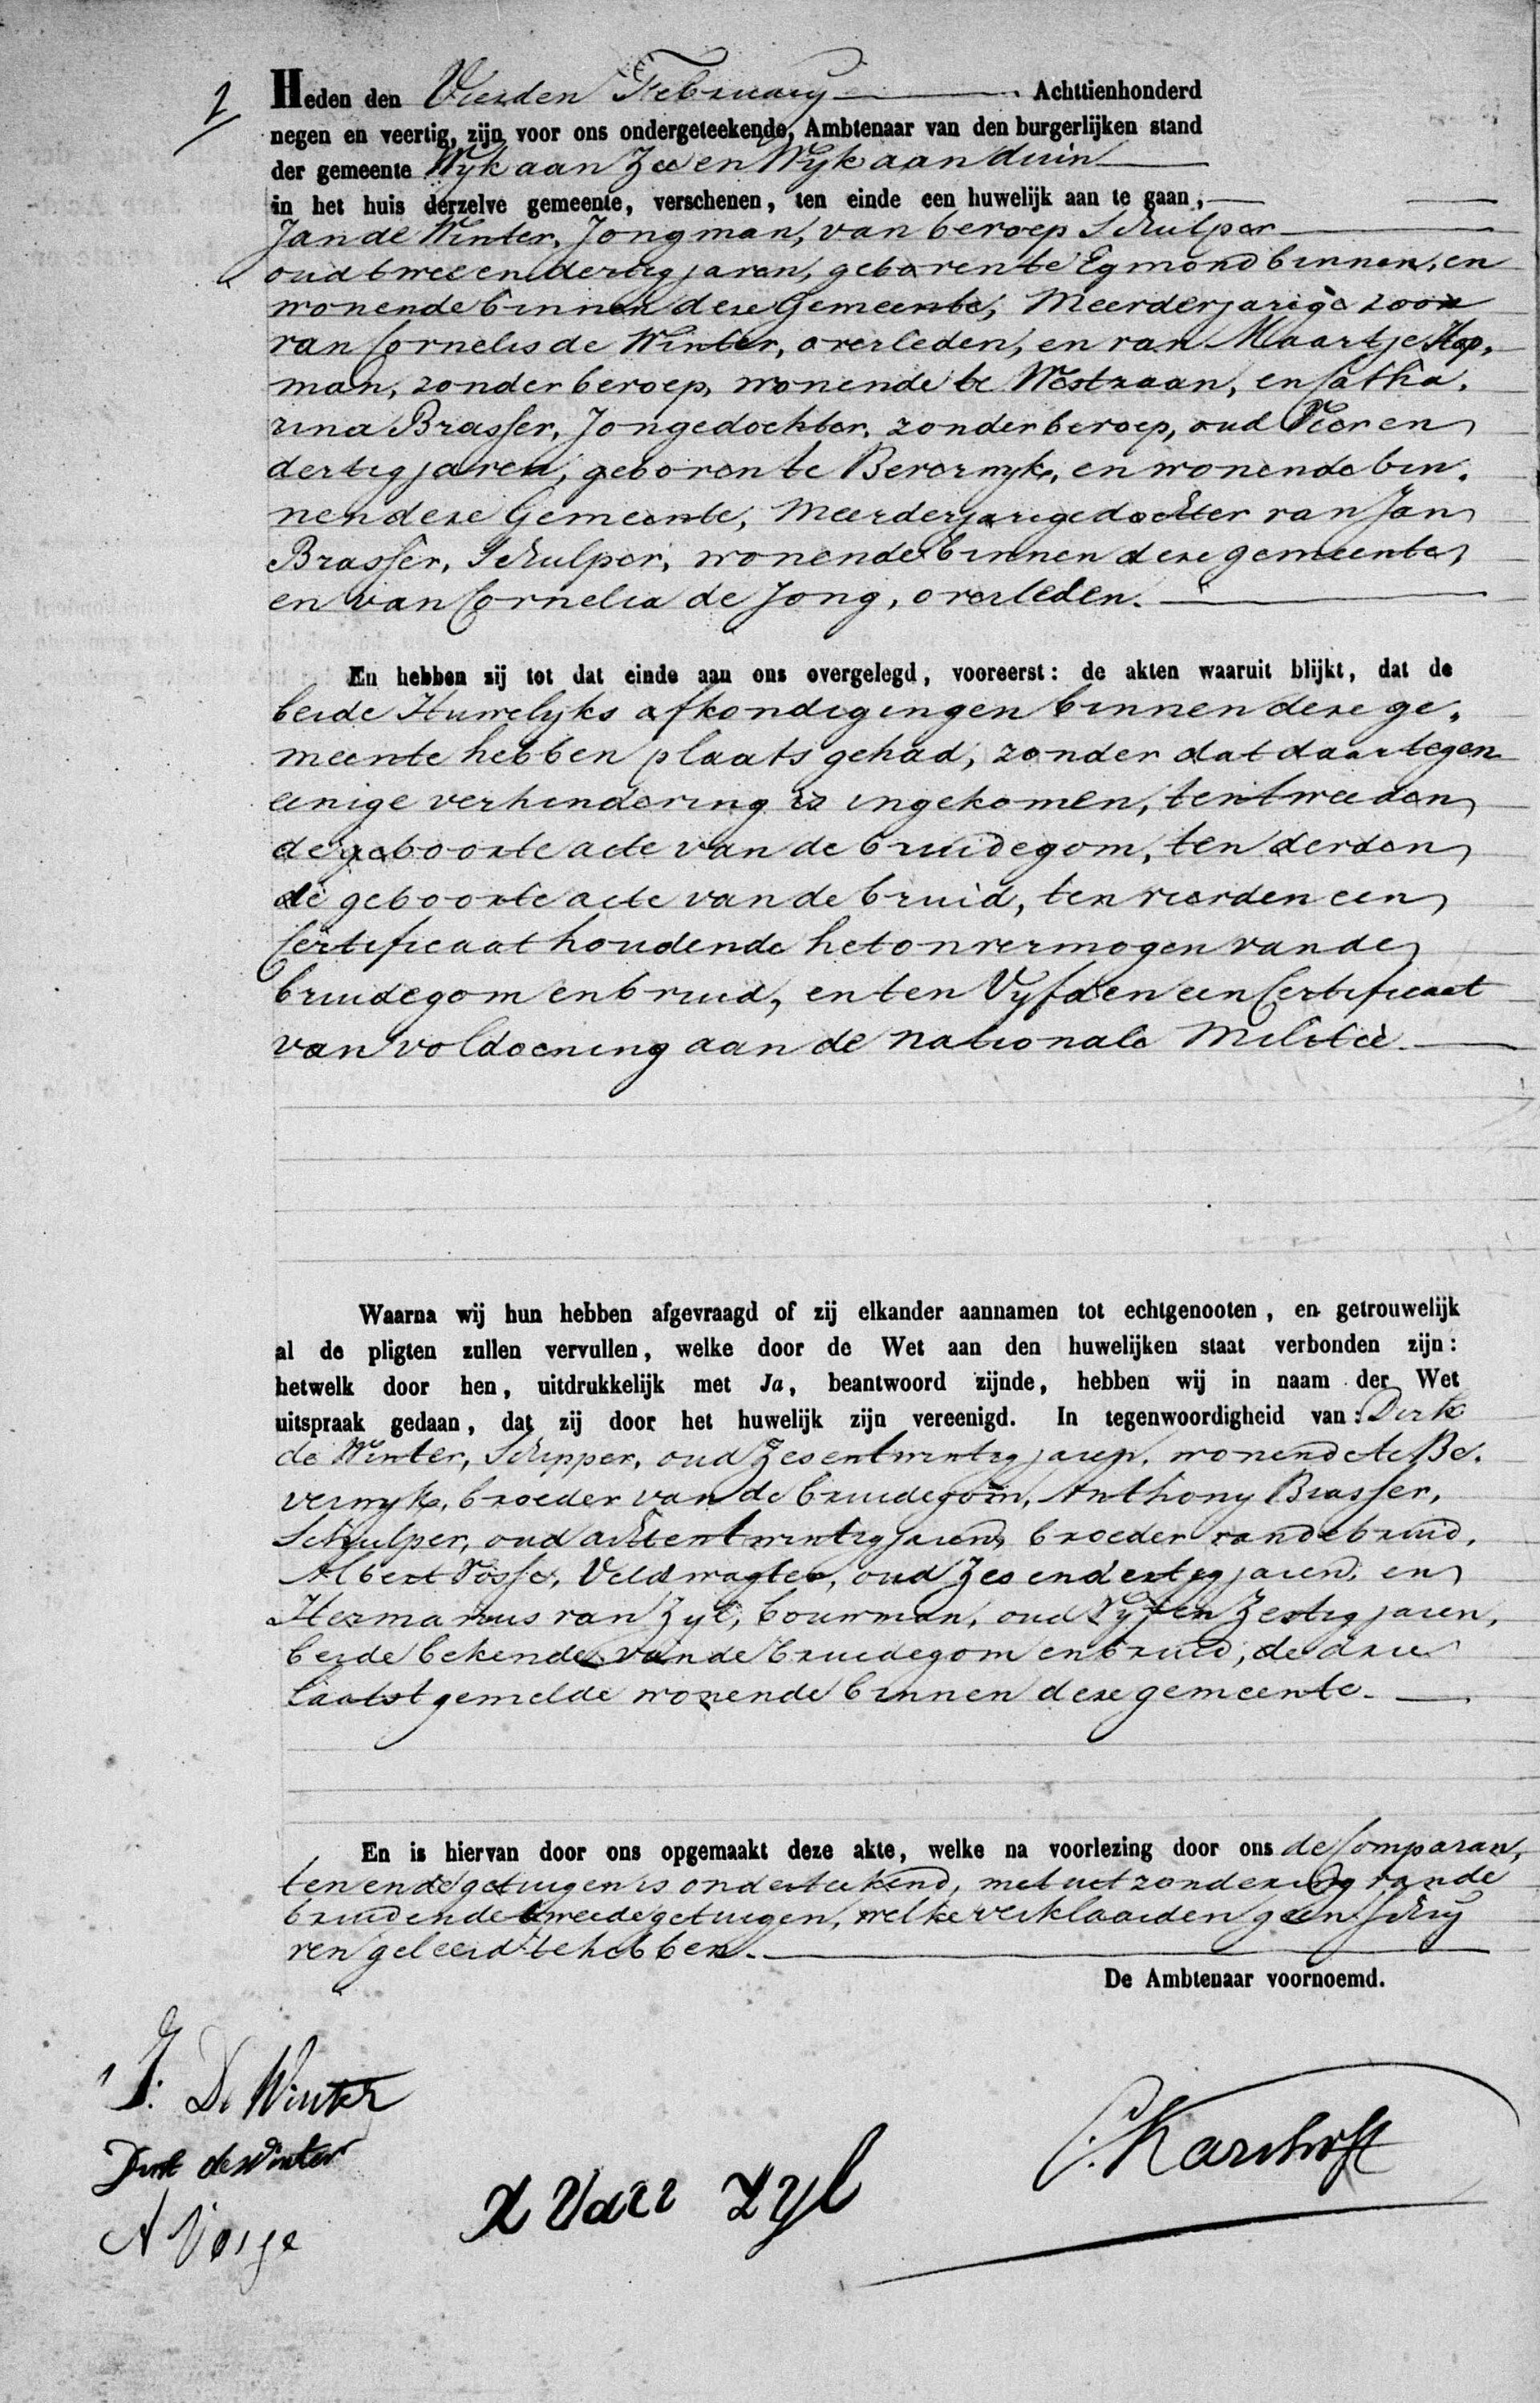 1
Heden den Vierden February Achttienhonderd
negen en veertig, zijn voor ons ondergeteekende, Ambtenaar van den burgerlijken stand
der gemeente Wyk aan Zee en Wyk aan duin
in het huis derzelve gemeente, verschenen, ten einde een huwelijk aan te gaan,
Jan de Winter, Jongman, van beroep Schulper
oud twee en dertig jaren, geboren te Egmond binnen, en
wonende binnen deze Gemeente, Meerderjarige zoon
van Cornelis de Winter, overleden, en van Maartje Hop-
man, zonder beroep, wonende te Westzaan, en Catha-
rina Brasser, Jongedochter, zonder beroep, oud Vier en
dertig jaren, geboren te Beverwyk, en wonende bin-
nen deze Gemeente, Meerderjarige dochter van Jan
Brasser, Schulper, wonende binnen deze gemeente,
en van Cornelia de Jong, overleden.
En hebben zij tot dat einde aan ons overgelegd, vooreerst: de akten waaruit blijkt, dat de
beide Huwelyks afkondigingen binnen deze ge-
meente hebben plaats gehad, zonder dat daartegen
eenige verhindering is ingekomen, ten tweeden
de geboorte acte van de bruidegom, ten derden
de geboorte acte van de bruid, ten vierden een
Certificaat houdende het onvermogen van de
bruidegom en bruid, en ten Vyfden een Certificaat
van voldoening aan de nationale Militie.
Waarna wij hun hebben afgevraagd of zij elkander aannamen tot echtgenooten, en getrouwelijk
al de pligten zullen vervullen, welke door de Wet aan den huwelijken staat verbonden zijn:
hetwelk door hen, uitdrukkelijk met Ja, beantwoord zijnde, hebben wij in naam der Wet
uitspraak gedaan, dat zij door het huwelijk zijn vereenigd. In tegenwoordigheid van: Dirk
de Winter, Schipper, oud Zes en twintig jaren, wonende te Be-
verwyk, broeder van de bruidegom, Anthony Brasser,
Schulper, oud acht en twintig jaren, broeder van de bruid,
Albert Vosse, Veldwagter, oud Zes en dertig jaren, en
Hermanus van Zyl, bouwman, oud Vyf en Zestig jaren,
beide bekenden van de bruidegom en bruid, de drie
laatst gemelde wonende binnen deze gemeente.
En is hiervan door ons opgemaakt deze akte, welke na voorlezing door ons de Comparan-
ten en de getuigen is onderteekend, met uitzondering van de
bruid en de tweede getuigen, welke verklaarden geen schry
ven geleerd te hebben.
De Ambtenaar voornoemd.
J. De Winter
Dirk de Winter
A Vosse
H Van Zyl